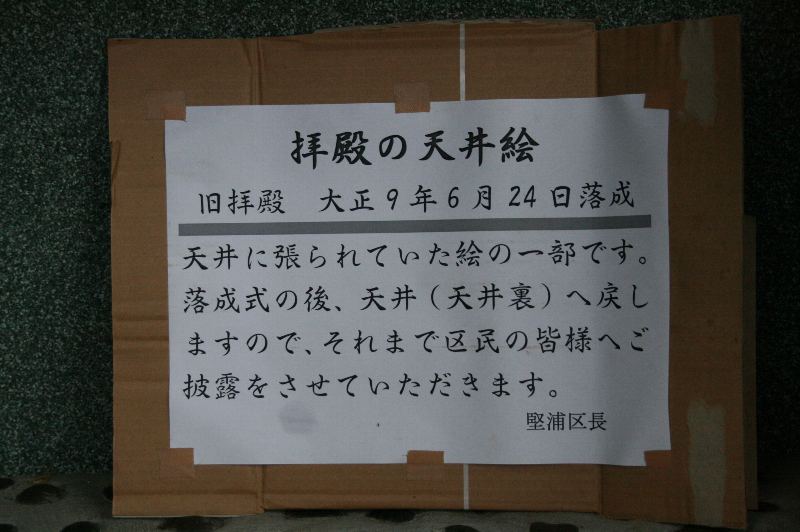 拝殿の天井絵
旧拝殿　大正9年6月24日落成
天井に張られていた絵の一部です。
落成式の後、天井（天井裏）へ戻し
ますので、それまで区民の皆様へご
披露をさせていただきます。
堅浦区長